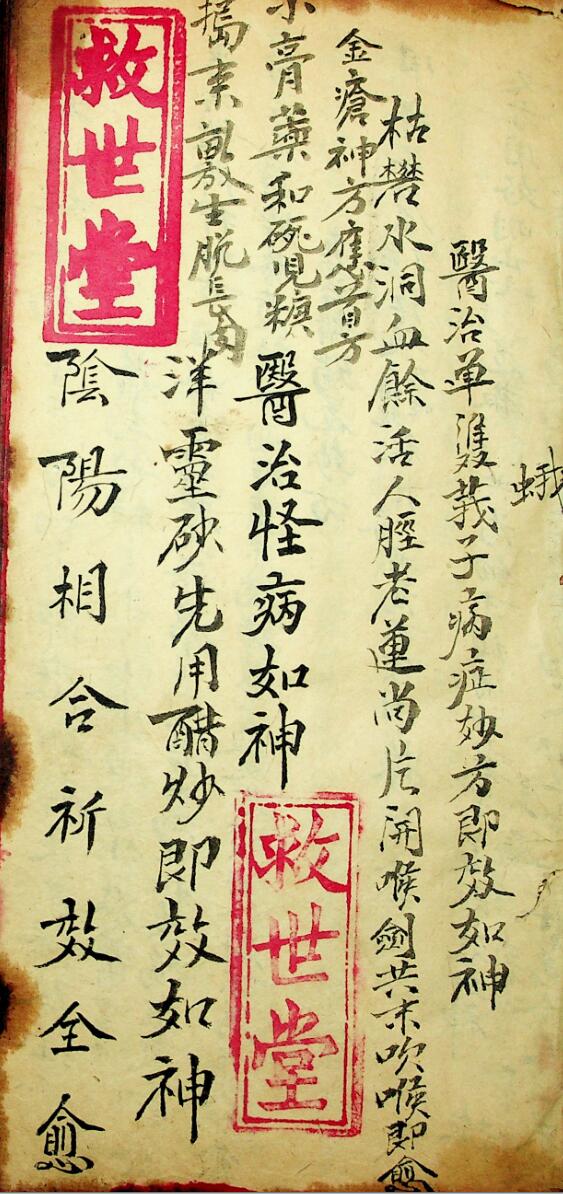 蛾
醫治单雙莪子病症妙方即效如神
枯礬水洞血餘活人脛老蓮尚片開喉劍共末吹喉即愈
金瘡神方應昔日方
膏藥和碗兒糖
搗末敷生脫長肉
醫治怪病如神
救世堂
洋靈砂先用醋炒即效如神
救世堂
陰陽相合祈效全愈